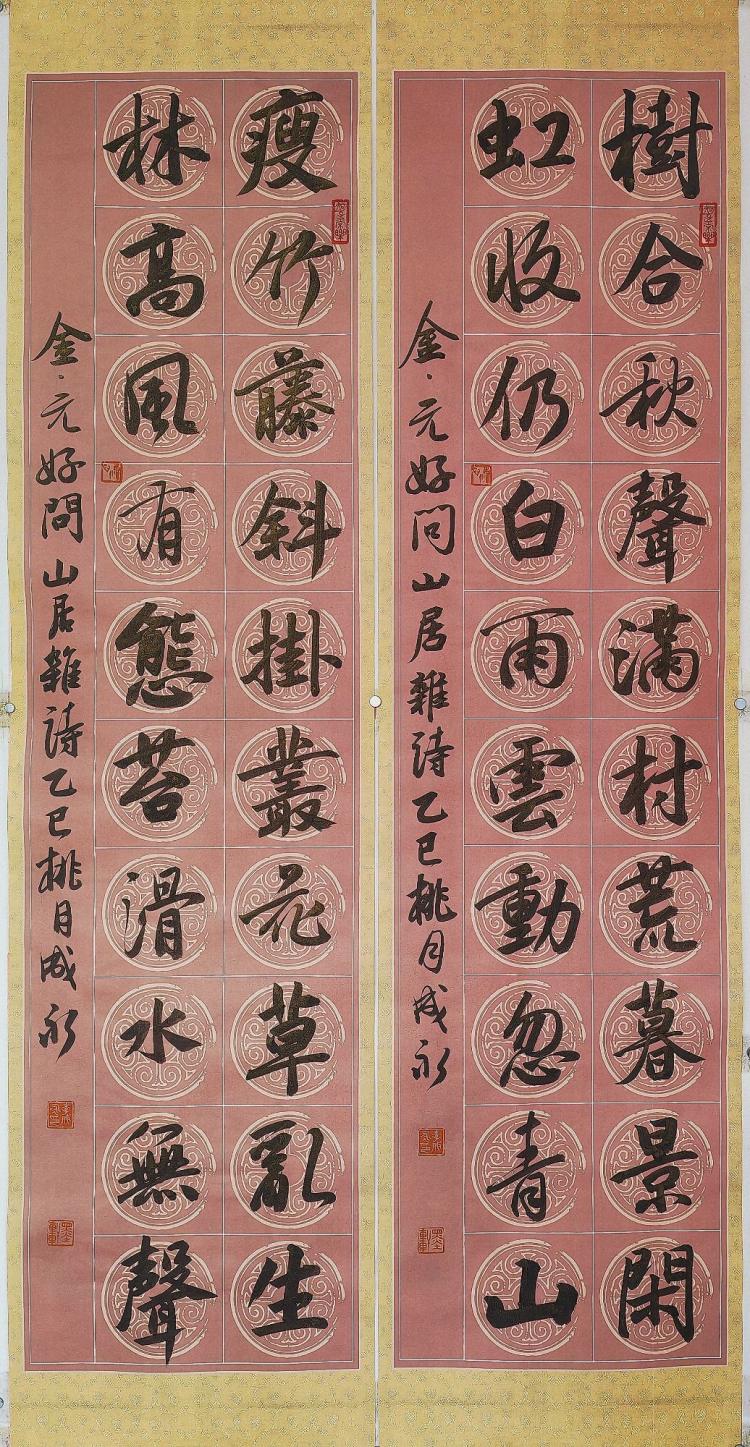 樹合秋聲滿村荒暮景閑
虹收仍白雨雲動忽青山
金·元好問山居雜詩乙巳桃月成永
瘦竹藤斜掛叢花草亂生
林高風有態苔滑水無聲
金·元好問山居雜詩乙巳桃月成永